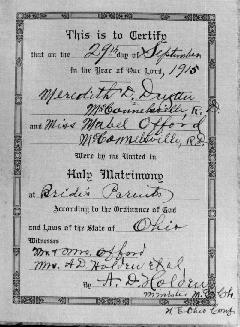 This is to Certify
that on the 29th day of September
in the Year of Our Lord, 1915
Meredith D. Dayton
McConnelsville, R. D.
and Miss Mabel Offord
McConnelsville, R.D.
Were by me United in
Holy Matrimony
at Bride's Parents
According to the Ordinance of God
and Laws of the State of Ohio
Witnesses
Mr & Mrs. Offord
Mrs. A D Holden et al
By A. D. Holden
Minister M. E. Ch
N E Ohio Conf